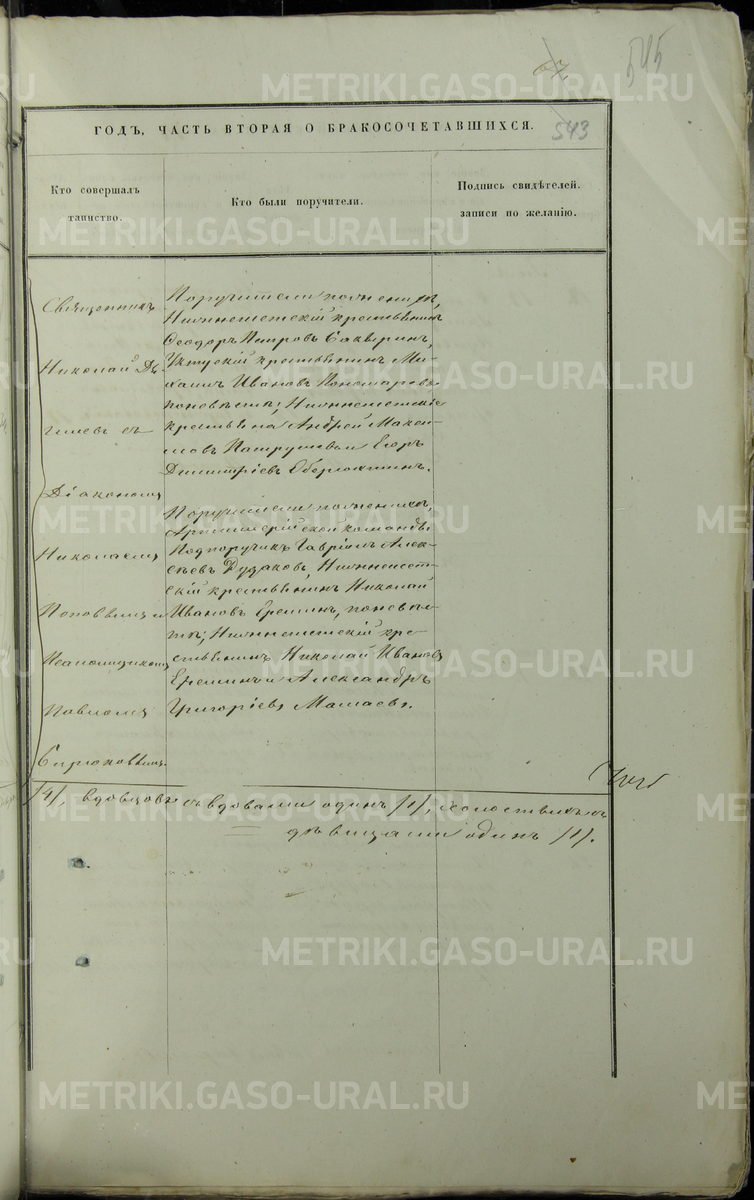 545
ГОДЪ, ЧАСТЬ ВТОРАЯ О БРАКОСОЧЕТАВШИХСЯ.
543
Кто совершалъ
таинство.
Кто были поручители.
Подпись свидѣтелей.
записи по желанію.
Священникъ
Николай
съ
Діакономъ
Николаемъ
Поповымъ и
Пономаремъ
Павломъ
Поручители по женихѣ,
Нижнеисетскій крестьянинъ
Ѳеодоръ Петровъ
Уктускій крестьянинъ Ми-
хаилъ Ивановъ Пономаревъ
по невѣстѣ; Нижнеисетскіе
крестьяна Андрей Макси-
мовъ Патрушевъ и Егоръ
Димитріевъ Оберюхтинъ.
Поручители по женихѣ,
Артиллерійской команды
Подпоручикъ Гавріилъ Алек-
сѣевъ Дудаковъ, Нижнеисет-
скій крестьянинъ Николай
Ивановъ Ереминъ, по невѣс-
тѣ; Нижнеисетскій кре-
стьянинъ Николай Ивановъ
Ереминъ и Александръ
Григоріевъ Мамаевъ.
/4/, вдовцовъ съ вдовами одинъ /1/, холостыхъ съ
дѣвицами одинъ /1/.
METRIKI.GASO-URAL.RU